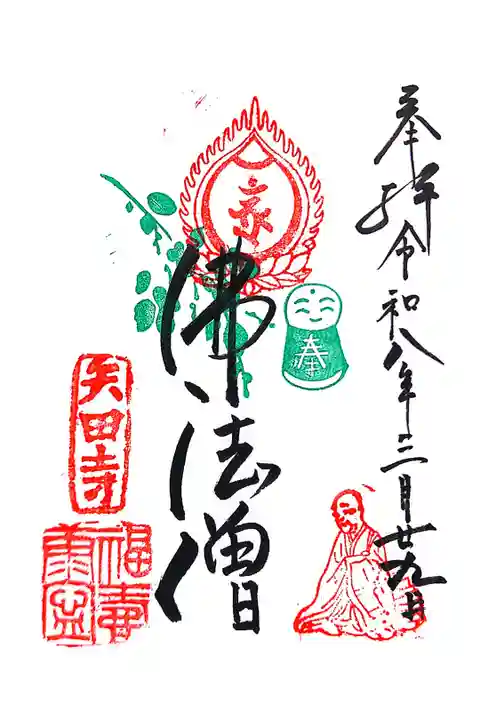 奉拝 令和八年三月廿九日
佛法僧
奉
矢田寺
福寿康寧